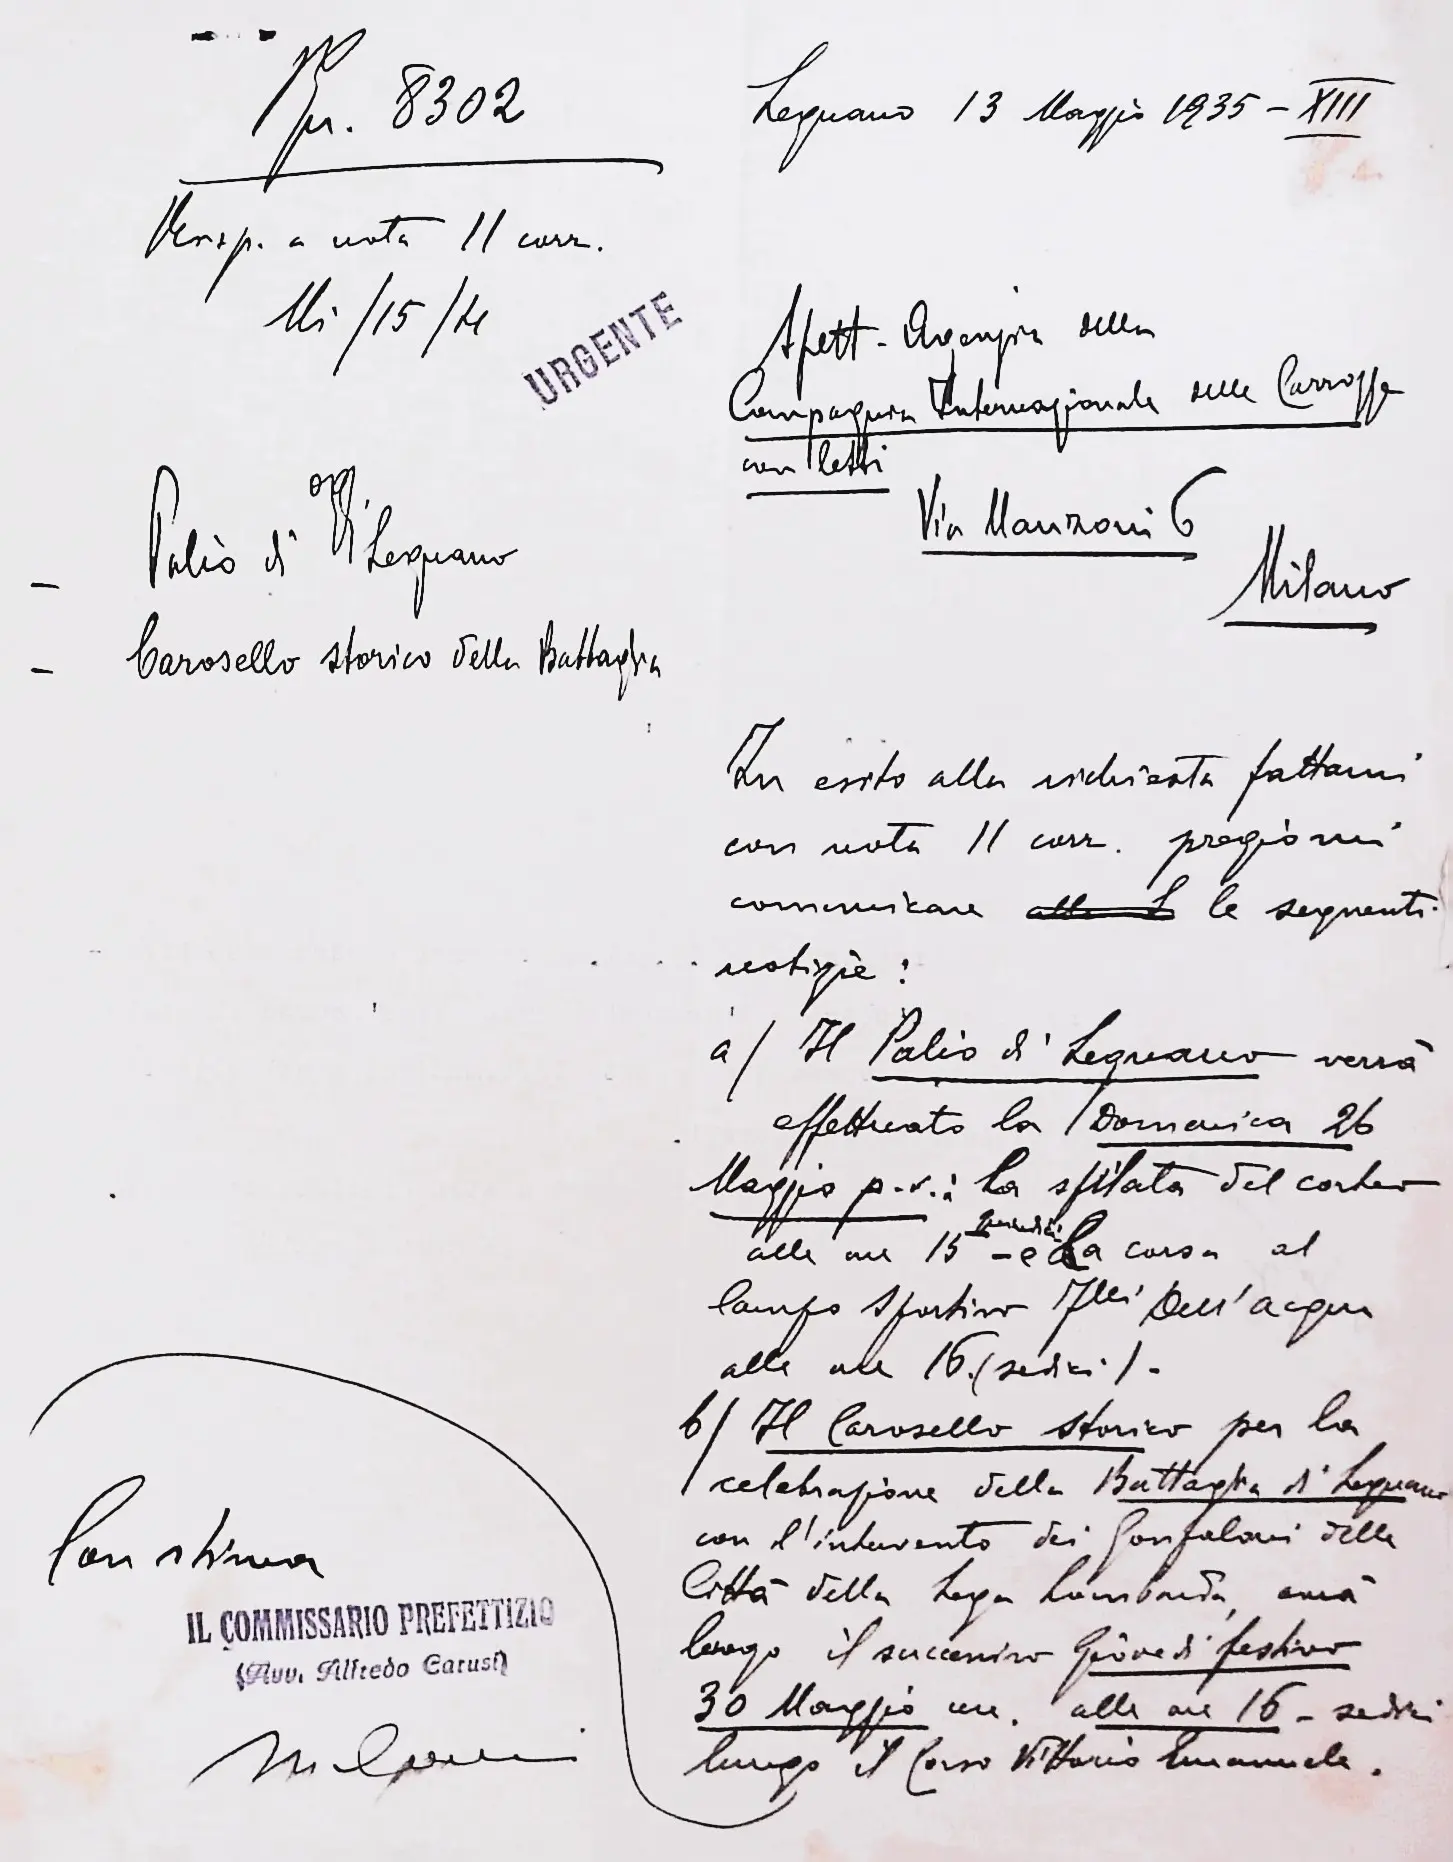 Pr. 8302
Legnano 13 Maggio 1935 - XIII
Resp. a nota 11 corr.
Mi/15/
URGENTE
Spett. Agenzia della
Compagnia Internazionale delle Carrozze
con letti
Via Manzoni 6
Milano
- Palio di Legnano
- Carosello storico della Battaglia
In esito alla richiesta fattami
con nota 11 corr. pregiomi
comunicare le seguenti
notizie:
a/ Il Palio di Legnano verrà
effettuato la Domenica 26
Maggio p.v.: La sfilata del corteo
alle ore 15 quindici - e la corsa al
Campo Sportivo F.lli Dell'Acqua
alle ore 16. (sedici) -
b/ Il Carosello storico per la
celebrazione della Battaglia di Legnano
con l'intervento dei Gonfaloni delle
Città della Lega Lombarda, avrà
luogo il successivo Giovedì festivo
30 Maggio alle ore 16 - sedici
lungo il Corso Vittorio Emanuele.
Con stima
IL COMMISSARIO PREFETTIZIO
(Avv. Alfredo Carusi)